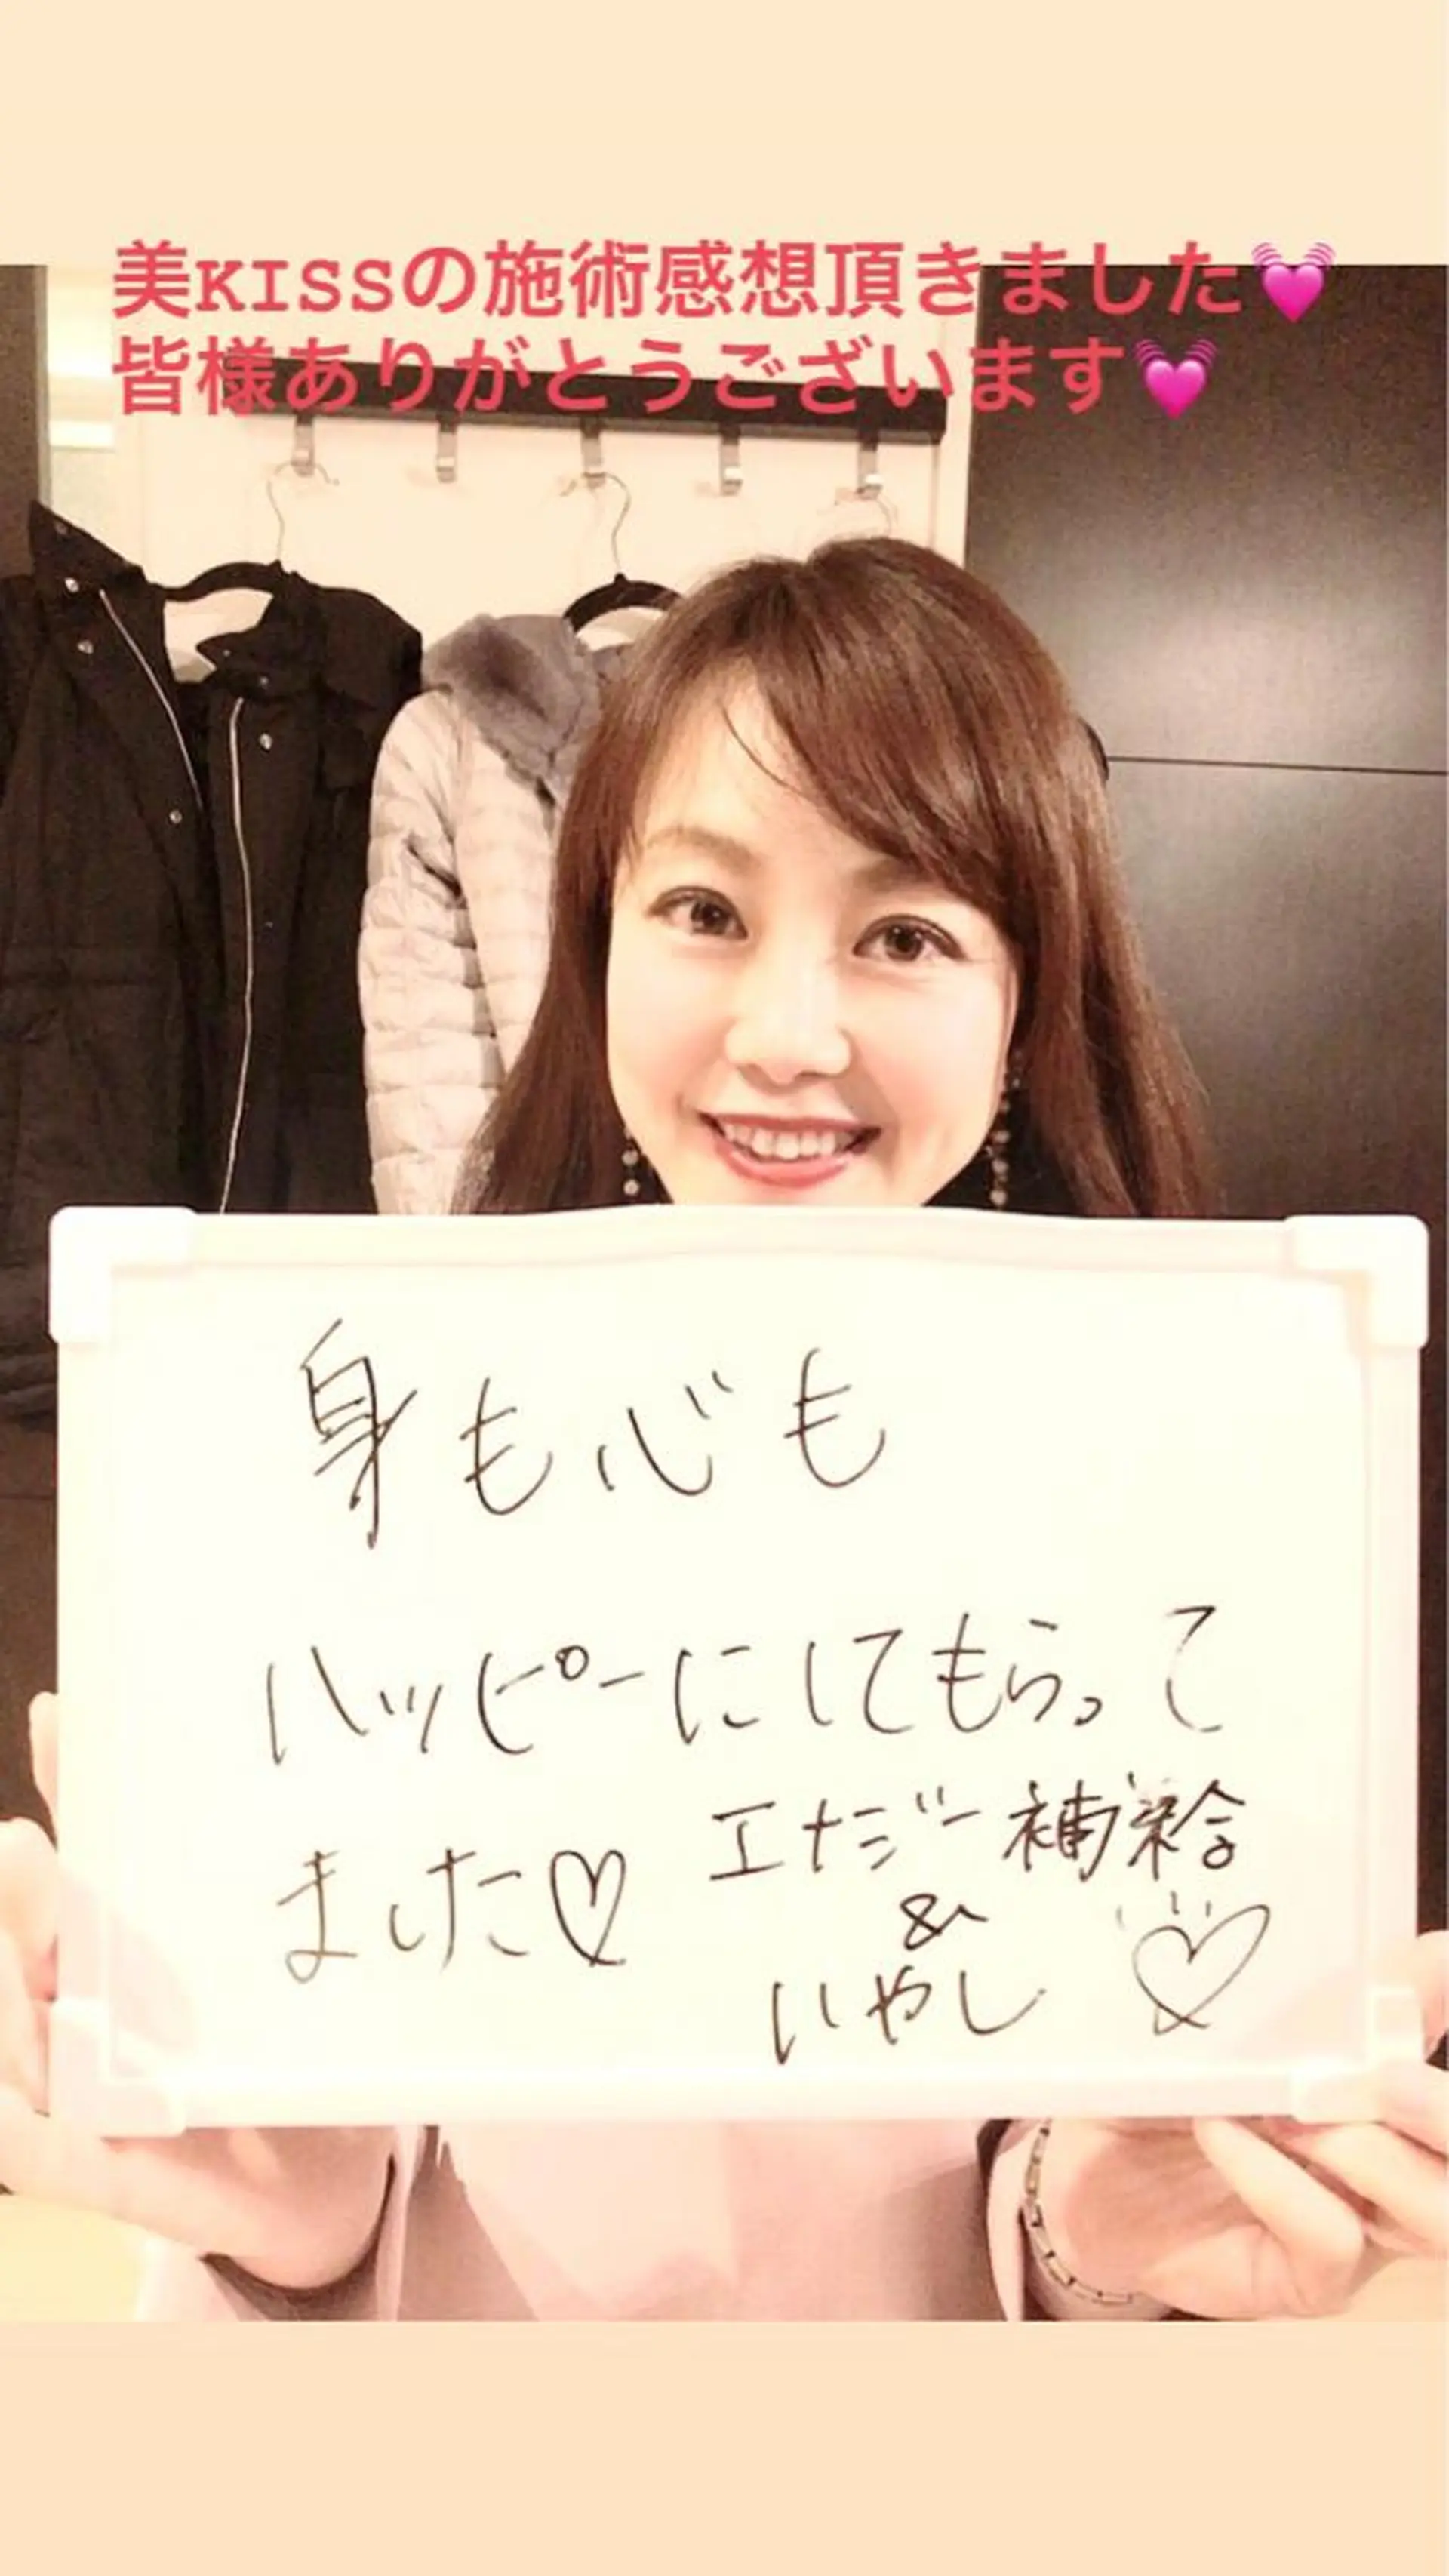 美KISSの施術感想頂きました💓
皆様ありがとうございます💓
身も心も
ハッピーにしてもらって
ました♡
エナジー補給
&
いやし♡